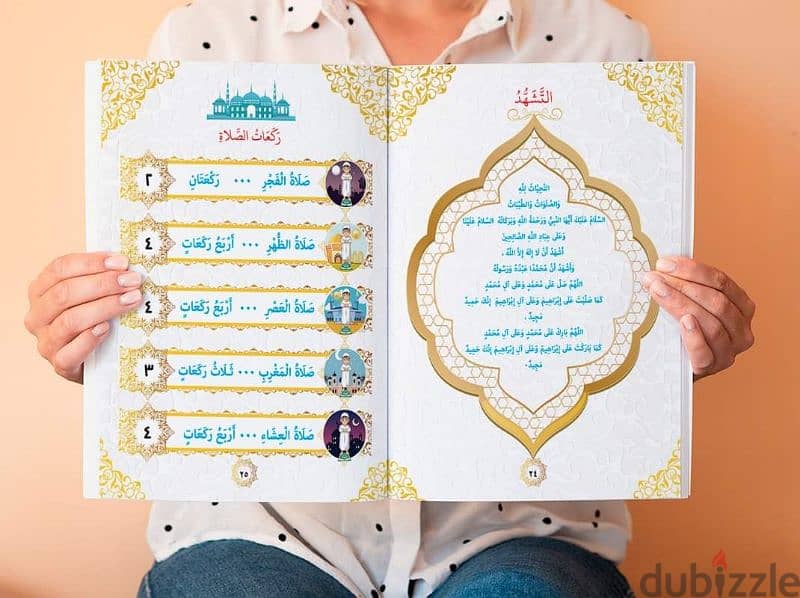 التَّشَهُّدُ
التَّحِيَّاتُ لِلَّهِ
وَالصَّلَوَاتُ وَالطَّيِّبَاتُ
السَّلَامُ عَلَيْكَ أَيُّهَا النَّبِيُّ وَرَحْمَةُ اللَّهِ وَبَرَكَاتُهُ السَّلَامُ عَلَيْنَا
وَعَلَى عِبَادِ اللَّهِ الصَّالِحِينَ
أَشْهَدُ أَنْ لَا إِلَهَ إِلَّا اللَّهُ ،
وَأَشْهَدُ أَنَّ مُحَمَّدًا عَبْدُهُ وَرَسُولُهُ
اللَّهُمَّ صَلِّ عَلَى مُحَمَّدٍ وَعَلَى آلِ مُحَمَّدٍ
كَمَا صَلَّيْتَ عَلَى إِبْرَاهِيمَ وَعَلَى آلِ إِبْرَاهِيمَ إِنَّكَ حَمِيدٌ
مَجِيدٌ .
اللَّهُمَّ بَارِكْ عَلَى مُحَمَّدٍ وَعَلَى آلِ مُحَمَّدٍ
كَمَا بَارَكْتَ عَلَى إِبْرَاهِيمَ وَعَلَى آلِ إِبْرَاهِيمَ إِنَّكَ حَمِيدٌ
مَجِيدٌ .
٢٤
رَكَعَاتُ الصَّلَاةِ
صَلَاةُ الْفَجْرِ ... رَكْعَتَانِ ٢
صَلَاةُ الظُّهْرِ ... أَرْبَعُ رَكَعَاتٍ ٤
صَلَاةُ الْعَصْرِ ... أَرْبَعُ رَكَعَاتٍ ٤
صَلَاةُ الْمَغْرِبِ ... ثَلَاثُ رَكَعَاتٍ ٣
صَلَاةُ الْعِشَاءِ ... أَرْبَعُ رَكَعَاتٍ ٤
٢٥
dubizzle